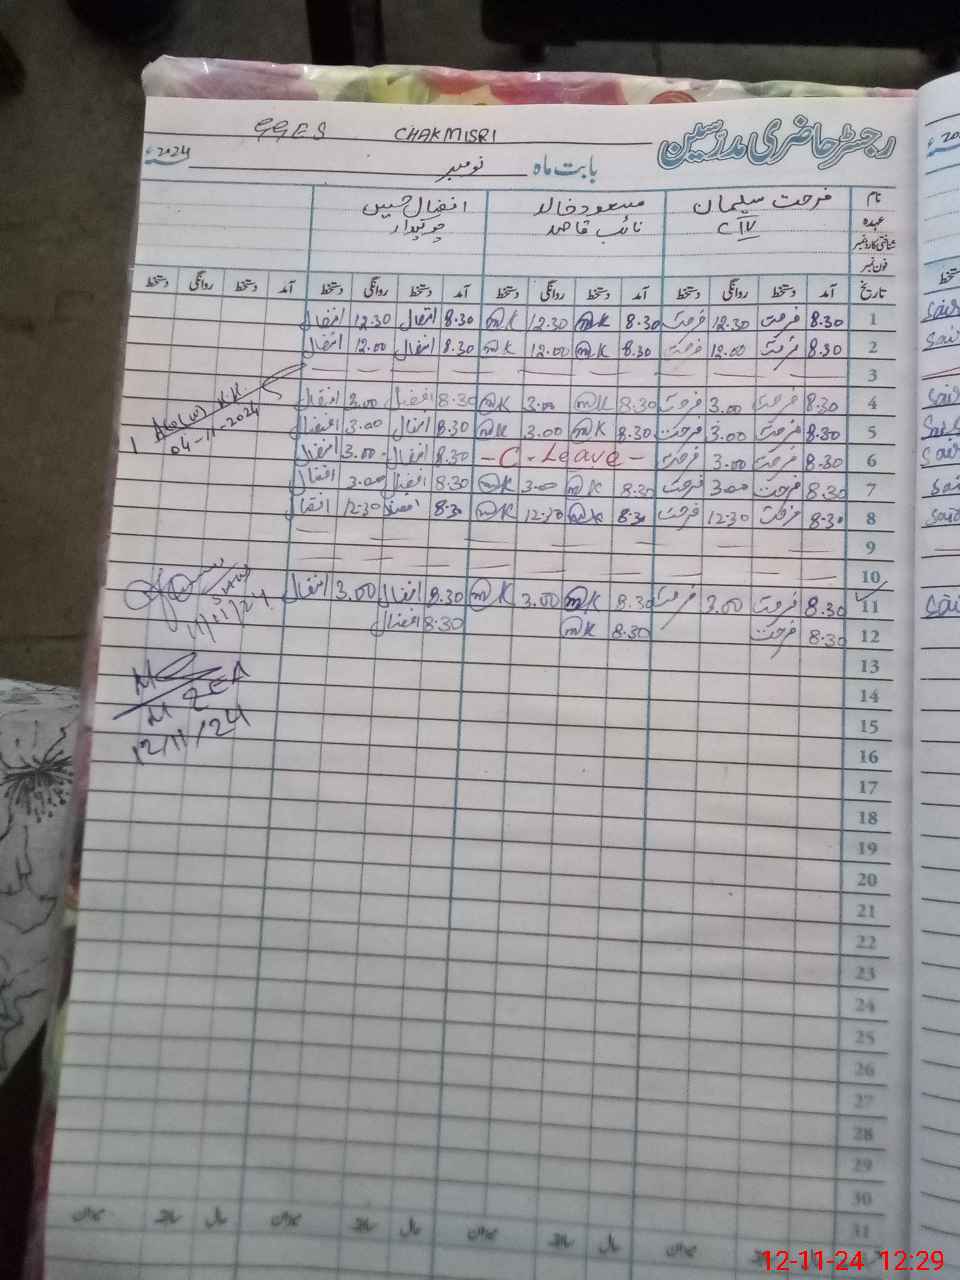 GGES CHAKMISRI
رجسٹر حاضری مدرسین
بابت ماہ نومبر 2024ء
نام فرحت سلیمان مسعود خالد افضال حسین
عہدہ CIV نائب قاصد چوکیدار
شناختی کارڈ نمبر
فون نمبر
تاریخ آمد دستخط روانگی دستخط آمد دستخط روانگی دستخط آمد دستخط روانگی دستخط آمد دستخط روانگی دستخط
1 8.30 فرحت 12.30 فرحت 8.30 mK 12.30 mK 8.30 افضال 12.30 افضال
2 8.30 فرحت 12.00 فرحت 8.30 mK 12.00 mK 8.30 افضال 12.00 افضال
3
4 8.30 فرحت 3.00 فرحت 8.30 mK 3.00 mK 8.30 افضال 3.00 افضال
5 8.30 فرحت 3.00 فرحت 8.30 mK 3.00 mK 8.30 افضال 3.00 افضال
04-11-2024
6 8.30 فرحت 3.00 فرحت - C - Leave - 8.30 افضال 3.00 افضال
7 8.30 فرحت 3.00 فرحت 8.30 mK 3.00 mK 8.30 افضال 3.00 افضال
8 8.30 فرحت 12.30 فرحت 8.30 mK 12.30 mK 8.30 افضال 12.30 افضال
9
10
11 8.30 فرحت 3.00 فرحت 8.30 mK 3.00 mK 8.30 افضال 3.00 افضال
11/11/24
12 8.30 فرحت 8.30 mK 8.30 افضال
13
14
15
12/11/24
16
17
18
19
20
21
22
23
24
25
26
27
28
29
30
31
12-11-24 12:29